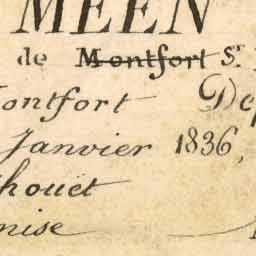 MEEN
de Montfort St.
Montfort Dép
Janvier 1836,
houet
mise